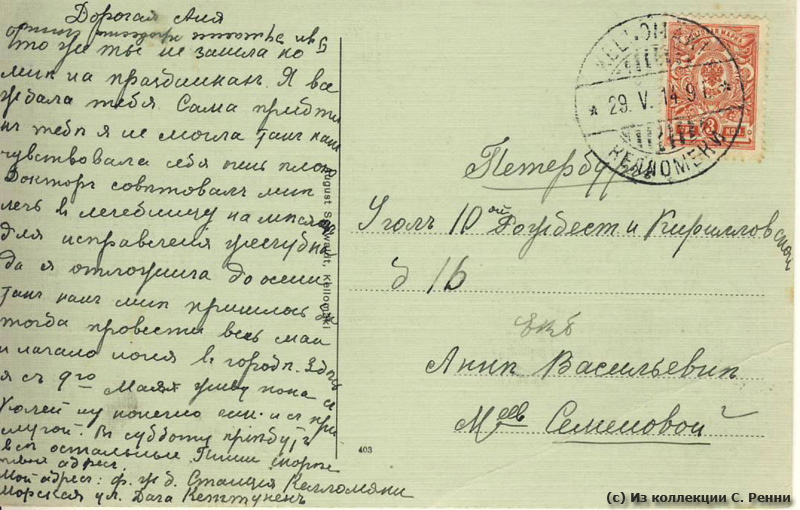 Дорогая Аня
что же ты не зашла ко
мнѣ на праздникахъ. Я все
ждала тебя. Сама прiѣхать
къ тебѣ я не могла такъ какъ
чувствовала себя очень плохо
Докторъ совѣтовалъ мнѣ
лечь в лечебницу на мѣсяцъ
для исправленiя желудка
да я отложила до осени
такъ какъ мнѣ пришлось бы
тогда провести весь май
и начало iюня в городѣ. Здѣсь
я съ 9го Мая живу пока съ
Юлей ну конечно и съ при
слугой. Въ субботу прiѣдутъ
всѣ остальные Пиши скорѣе
адрес.
Мой адресъ: ф. ж. д. Станцiя Келломяки
Морская ул. Дача Кеттуненъ
August Kellomäki
403
KELLOMÄKI
29. V. 14
КЕЛЛОМЯКИ
3
Петербургъ
Уголъ 10ой Рождест и Кирилловской
д 16
Аннѣ Васильевнѣ
Семеновой
(c) Из коллекции С. Ренни